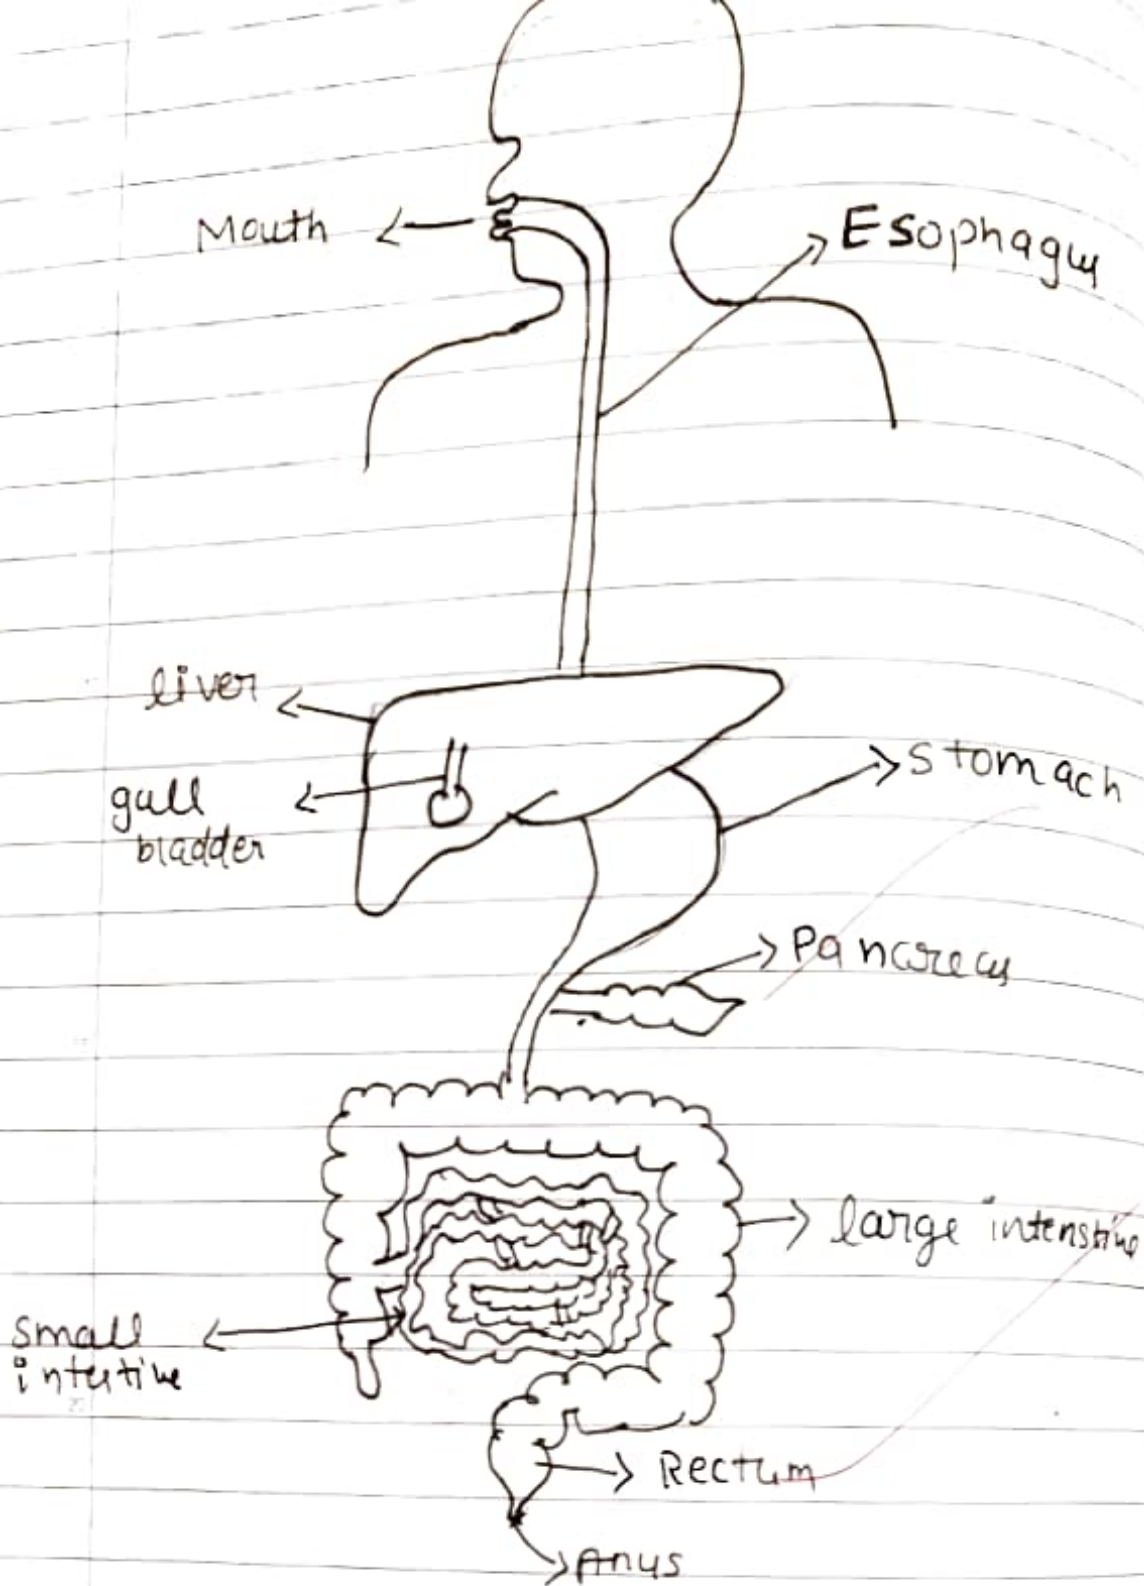 Mouth
Esophagus
liver
gall
bladder
Stomach
Pancreas
large intenstine
small
intestine
Rectum
Anus